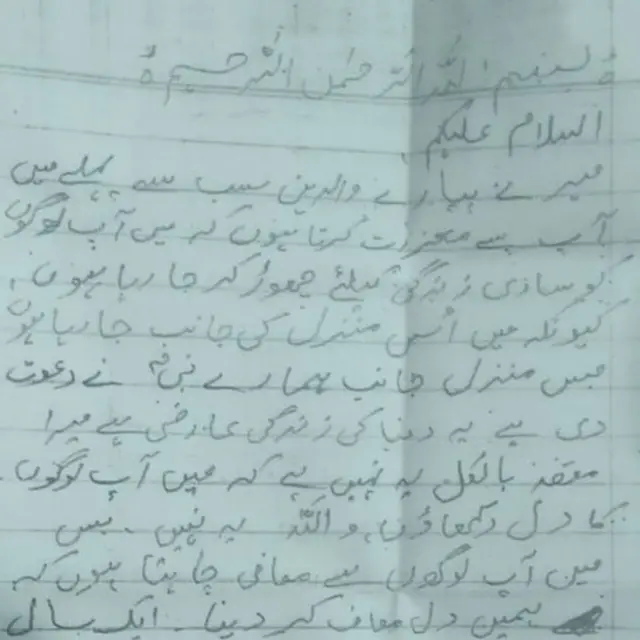 بسم اللہ الرحمٰن الرحیم
السلام علیکم
میرے پیارے والدین سب سے پہلے میں
آپ سے معذرت کرتا ہوں کہ میں آپ لوگوں
کو ساری زندگی کیلئے چھوڑ کر جا رہا ہوں.
کیونکہ میں اُس منزل کی جانب جا رہا ہوں
جس منزل جانب ہمارے نبیؐ نے دعوت
دی ہے یہ دنیا کی زندگی عارضی ہے میرا
مقصد بالکل یہ نہیں ہے کہ میں آپ لوگوں
کا دل دکھاؤں، واللہ یہ نہیں. بس
میں آپ لوگوں سے معافی چاہتا ہوں کہ
ہمیں دل معاف کر دینا. ایک سال